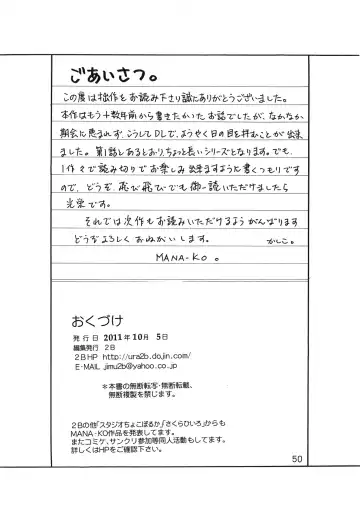 ごあいさつ。
この度は拙作をお読み下さり誠にありがとうございました。
本作はもう十数年前から書きたかったお話でしたが、なかなか
機会に恵まれず、こうしてDLで、ようやく日の目を拝むことが出来
ました。第1話とあるとおり、ちょっと長いシリーズとなります。でも、
1作々で読み切りでお楽しみ出来ますように書くつもりです
ので、どうぞ、飛び飛びでも御一読いただけましたら
光栄です。
それでは次作もお読みいただけるようがんばります
どうぞよろしくおねがいします。 かしこ。
MANA-KO。
おくづけ
発行日 2011年10月 5日
編集発行 2B
2BHP http://ura2b.dojin.com/
E-MAIL jimu2b@yahoo.co.jp
＊本書の無断転写・無断転載、
無断複製を禁じます。
2Bの他「スタジオちょこぽるか」「さくらひいろ」からも
MANA-KO作品を発表してます。
またコミケ、サンクリ参加等同人活動もしてます。
詳しくはHPをご確認下さい。
50